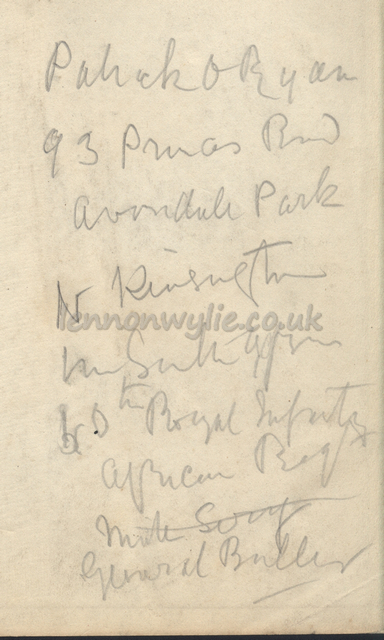 Patrick O Ryan
93 Princes Road
Avondale Park
N Kinsington
lennonwylie.co.uk
in South
Royal Infantry
African Reg
General Buller